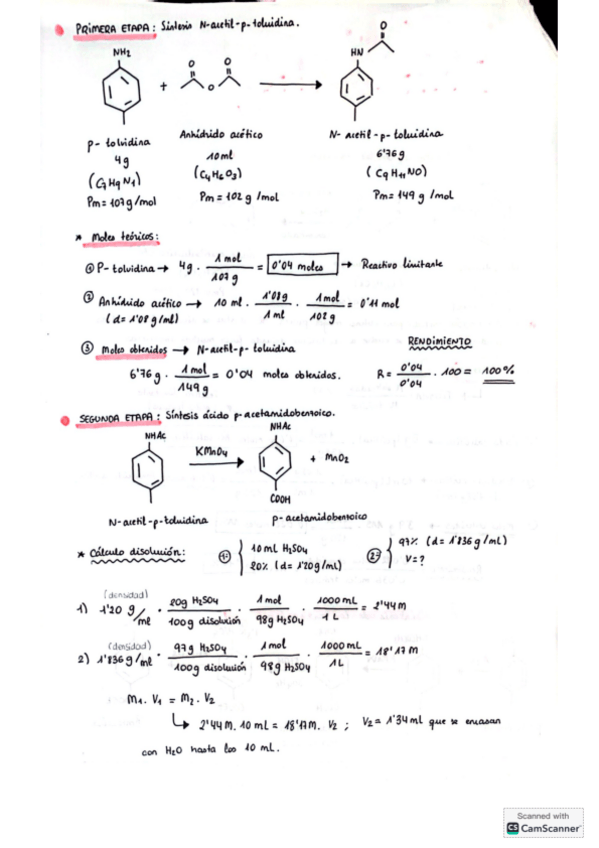 PRIMERA ETAPA: Síntesis N-acetil-p-toluidina.
NH2 + O O O → HN O
p-toluidina Anhídrido acético N-acetil-p-toluidina
4g 10ml 6'76g
(C7H9N1) (C4H6O3) (C9H11NO)
Pm=107g/mol Pm=102g/mol Pm=149g/mol
* Moles teóricos:
① P-toluidina → 4g · 1 mol / 107 g = 0'04 moles → Reactivo limitante
② Anhídrido acético → 10 ml · 1'08g / 1 ml · 1mol / 102g = 0'11 mol
(d=1'08g/ml)
RENDIMIENTO
③ Moles obtenidos → N-acetil-p-toluidina
6'76g · 1 mol / 149g = 0'04 moles obtenidos. R = 0'04 / 0'04 · 100 = 100%
SEGUNDA ETAPA: Síntesis ácido p-acetamidobenzoico.
NHAc KMnO4 → NHAc + MnO2
COOH
N-acetil-p-toluidina p-acetamidobenzoico
* Cálculo disolución: 10mL H2SO4 97% (d=1'836g/mL)
20% (d=1'20g/mL) V=?
(densidad)
1) 1'20 g/ml · 20g H2SO4 / 100g disolución · 1mol / 98g H2SO4 · 1000mL / 1L = 2'44M
(densidad)
2) 1'836g/ml · 97g H2SO4 / 100g disolución · 1mol / 98g H2SO4 · 1000mL / 1L = 18'17M
M1 · V1 = M2 · V2
↳ 2'44M · 10mL = 18'17M · V2 ; V2=1'34ml que se enrasan
con H2O hasta los 10 mL.
Scanned with
CS CamScanner